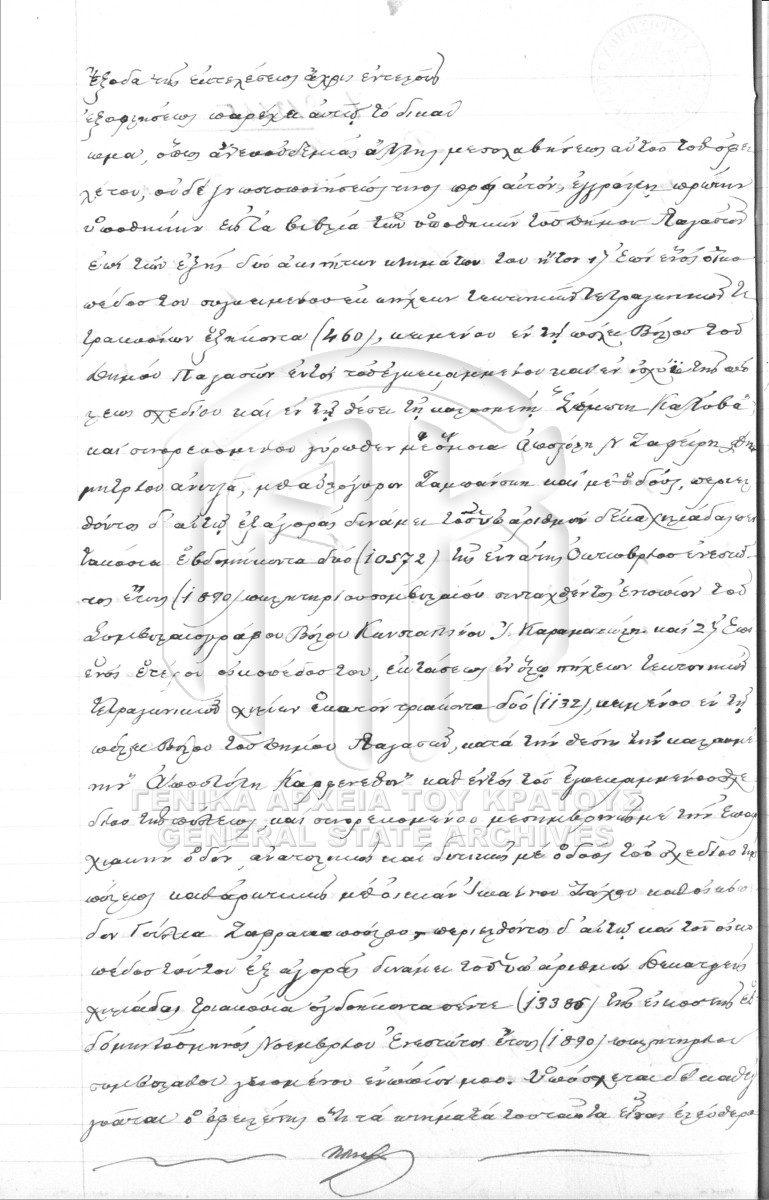 ἔξοδα τῆς ἐκτελέσεως ἄχρις ἐντελοῦς
ἐξοφλήσεως παρέχει αὐτῷ τὸ δικαί
ωμα, ὅπως ἄνευ οὐδεμιᾶς ἄλλης μεσολαβήσεως αὐτοῦ τοῦ ὀφει
λέτου, οὐδὲ γνωστοποιήσεώς τινος πρὸς αὐτόν, ἐγγράψῃ πρώτην
ὑποθήκην εἰς τὰ βιβλία τῶν ὑποθηκῶν τοῦ δήμου Παγασῶν
ἐπὶ τῶν ἑξῆς δύο ἀκινήτων κτημάτων του ἤτοι 1) ἐπὶ ἑνὸς οἰκο
πέδου του συγκειμένου ἐκ πήχεων τεκτονικῶν τετραγωνικῶν τε
τρακοσίων ἑξήκοντα (460), κειμένου ἐν τῇ πόλει Βόλου τοῦ
δήμου Παγασῶν ἐντὸς τοῦ ἐγκεκριμμένου καὶ ἐν ἰσχύϊ τῆς πό
λεως σχεδίου καὶ ἐν τῇ θέσει τῇ καλουμένῃ Καλύβα"
καὶ συνορευομένου γύρωθεν μὲ ὅμοια Ἀποστόλη Ν Ζαφείρη, Δη
μητρίου καὶ μὲ ὁδούς, περιελ
θόντος δ' αὐτῷ ἐξ ἀγορᾶς δυνάμει τοῦ ὑπ' ἀριθμὸν δέκα χιλιάδας πεν
τακόσια ἑβδομήκοντα δύο (10572) τῆς ἐννάτης Ὀκτωβρίου ἐνεστῶ
τος ἔτους (1890) πωλητηρίου συμβολαίου συνταχθέντος ἐνώπιον τοῦ
Συμβολαιογράφου Βόλου Κωνσταντίνου Ἰ. καὶ 2) ἐπὶ
ἑνὸς ἑτέρου οἰκοπέδου του, ἐκτάσεως ἐν ὅλῳ πήχεων τεκτονικῶν
τετραγωνικῶν χιλίων ἑκατὸν τριάκοντα δύο (1132), κειμένου ἐν τῇ
πόλει Βόλου τοῦ δήμου Παγασῶν, κατὰ τὴν θέσιν τὴν καλουμέ
νην "Ἀποστόλη Καφενεδον" καὶ ἐντὸς τοῦ ἐγκεκριμμένου σχε
δίου τῆς πόλεως, καὶ συνορευομένου μεσημβρινῶς μὲ τὴν ἐπαρ
χιακὴν ὁδόν, ἀνατολικῶς καὶ δυτικῶς μὲ ὁδοὺς τοῦ σχεδίου τῆς
πόλεως καὶ ἀρκτικῶς μὲ οἰκίαν Ἰωάννου καὶ οἰκόπε
δον περιελθόντος δ' αὐτῷ καὶ τοῦ οἰκο
πέδου τούτου ἐξ ἀγορᾶς δυνάμει τοῦ ὑπ' ἀριθμὸν δεκατρεῖς
χιλιάδας τριακόσια ὀγδοήκοντα πέντε (13385) τῆς εἰκοστῆς ἑβ
δόμης τοῦ μηνὸς Νοεμβρίου ἐνεστῶτος ἔτους (1890) πωλητηρίου
συμβολαίου γενομένου ἐνώπιόν μου. Ὑπόσχεται δὲ καὶ ἐγ
γυᾶται ὁ ὀφειλέτης ὅτι τὰ κτήματά του ταῦτα εἶναι ἐλεύθερα
ΓΕΝΙΚΑ ΑΡΧΕΙΑ ΤΟΥ ΚΡΑΤΟΥΣ
GENERAL STATE ARCHIVES